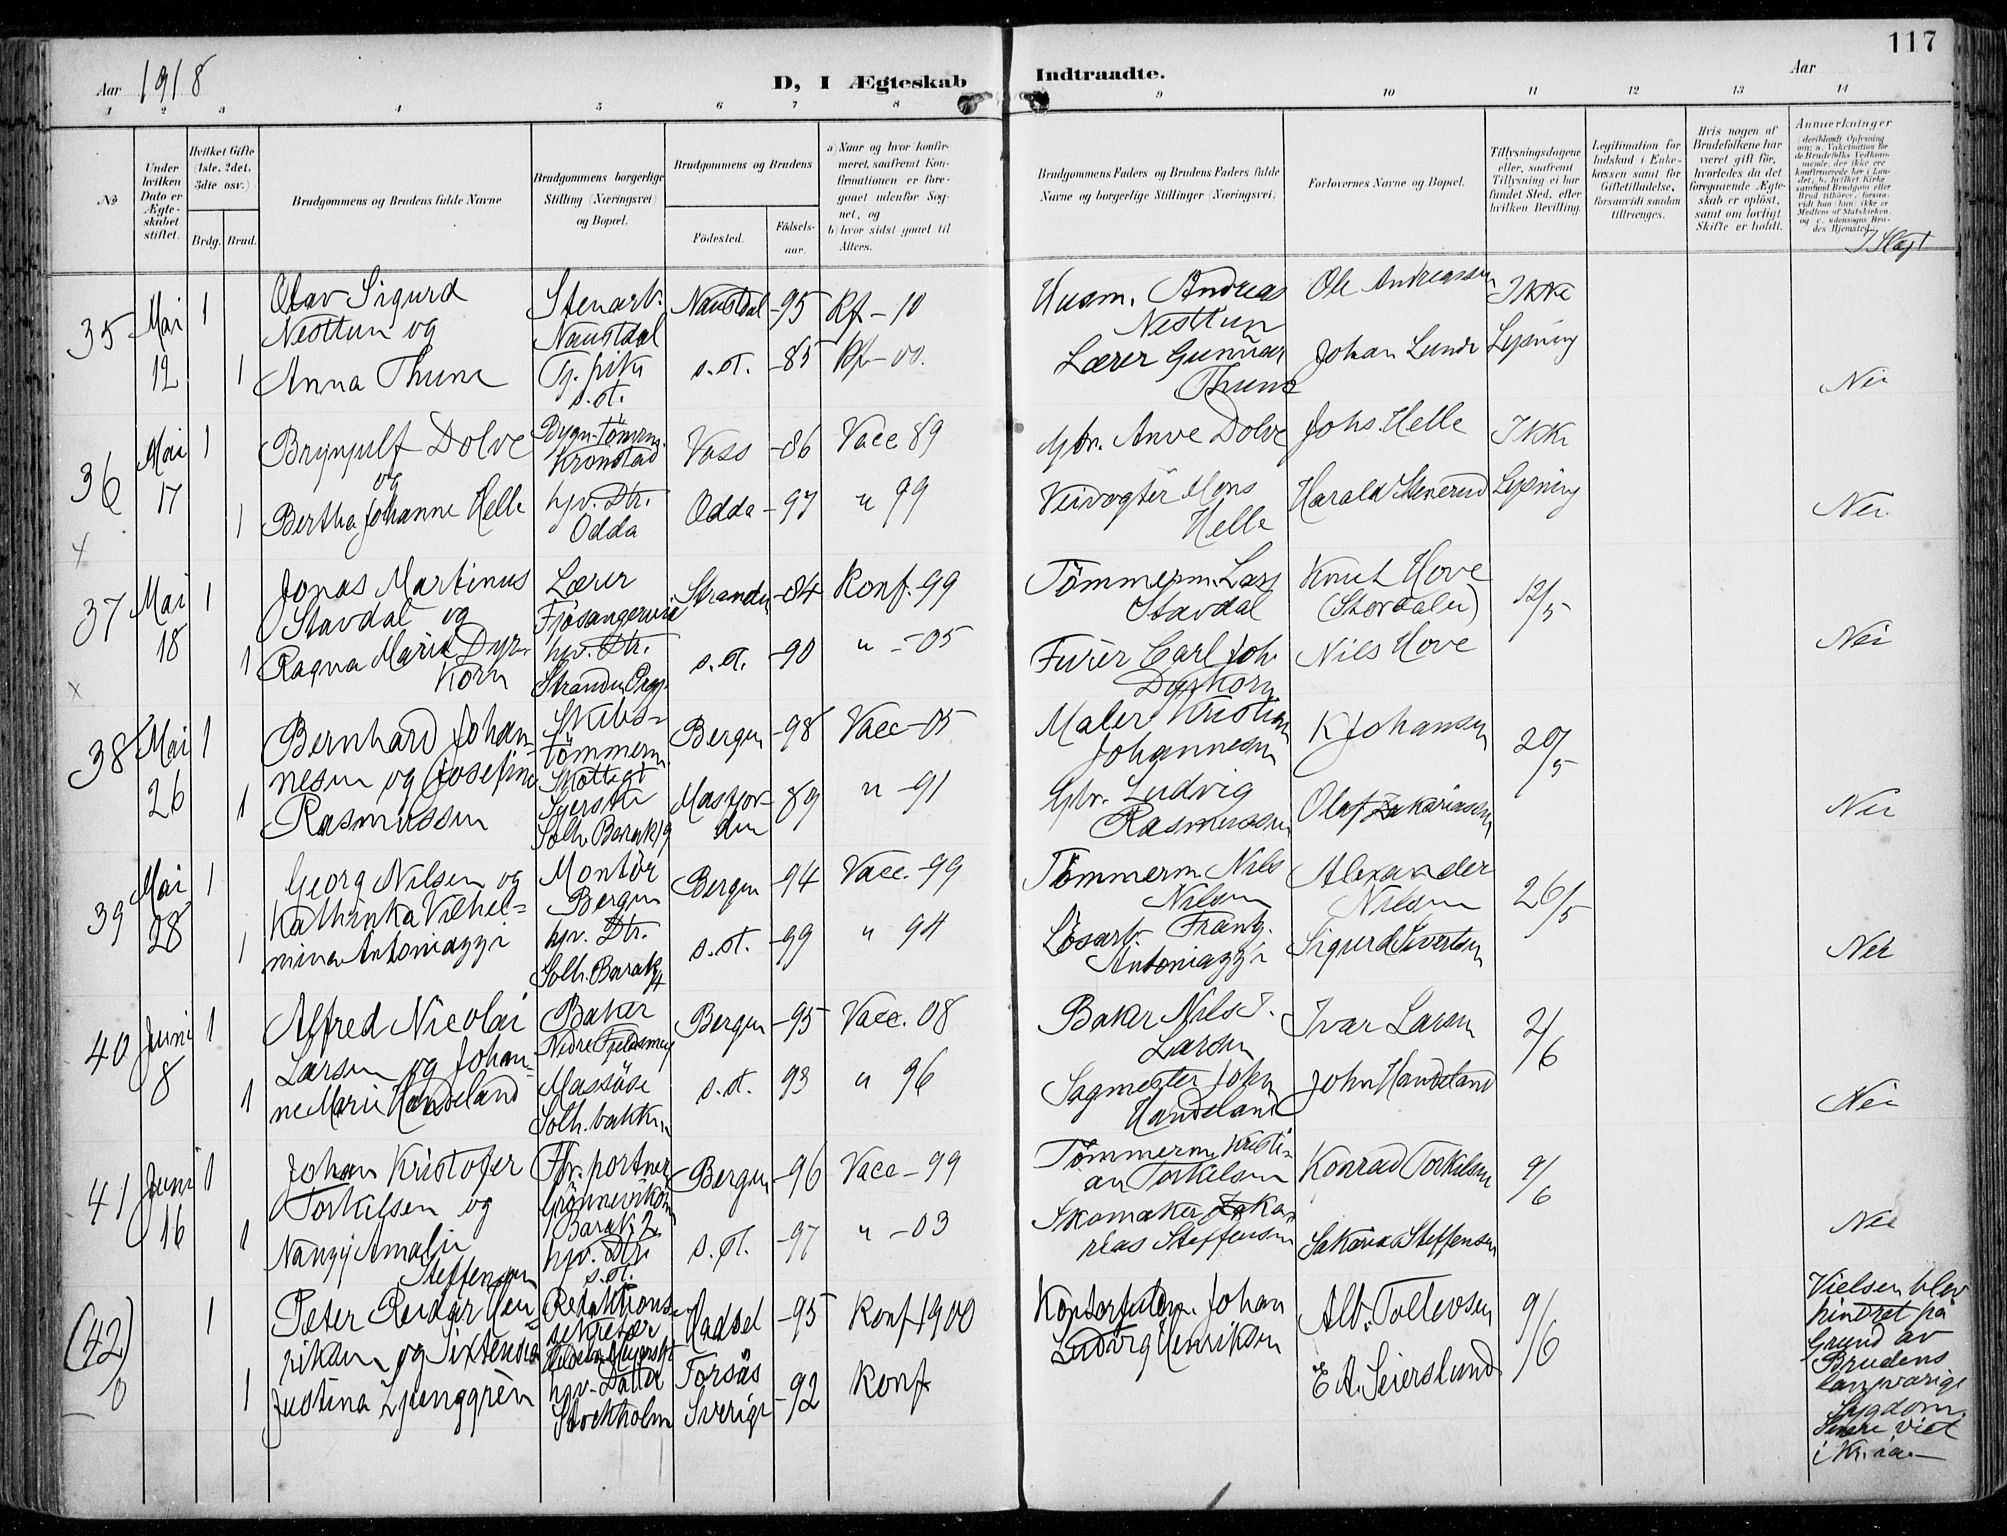 117
Aar 1918
D, I Ægteskab Indtraadte.
Aar
1 2 3 4 5 6 7 8 9 10 11 12 13 14
No
Under hvilken Dato er Ægteskabet stiftet.
Hvilket Gifte (1ste, 2det, 3die osv.)
Brdg. Brud.
Brudgommens og Brudens fulde Navne
Brudgommens borgerlige Stilling (Næringsvei) og Bopæl.
Brudgommens og Brudens
Fødested. Fødselsaar.
a) Naar og hvor konfirmeret, saafremt Konfirmationen er foregaaet udenfor Sognet, og
b) hvor sidst gaaet til Alters.
Brudgommens Faders og Brudens Faders fulde Navne og borgerlige Stillinger (Næringsvei)
Forlovernes Navne og Bopæl.
Tillysningsdagene eller, saafremt Tillysning ei har fundet Sted, efter hvilken Bevilling.
Legitimation for Indskud i Enkekassen samt for Giftetilladelse, forsaavidt saadan tiltrænges.
Hvis nogen af Brudefolkene har været gift før, hvorledes da det foregaaende Ægteskab er opløst, samt om lovligt Skifte er holdt.
Anmærkninger
I Slegt
35 Mai 12 1 Olav Sigurd
Nesttun og
1 Anna Thune
Stenarb.
Naustdal
Tj. pike
s. st.
Naustdal -95 Kf - 10
s. st. -85 Kf - 00.
Husm. Andreas
Nesttun
Lærer Gunnar
Thune
Ole Andreassen
Johan Lunde
Ikke
Lysning
Nei
36 Mai 17 1 Brynjulf Dolve
og
1 Bertha Johanne Helle
Kronstad
hjv. Dtr.
Odda
Voss -86 Vacc 89
Odda -97 " 99
Gbr. Anve Dolve
Veivogter Mons
Helle
Johs. Helle
Harald Stenerud
Ikke
Lysning
Nei.
37 Mai 18 1 Jonas Martinus
Stavdal og
1 Ragna Marie Dyrkorn
Lærer
Fjøsangerveien
hjv. Dtr.
Stranden
Stranden -84 Konf. -99
s. st. -90 " -05
Tømmerm. Lars
Stavdal
Furer Carl Joh.
Dyrkorn
Knut Hove
(Stordalen)
Nils Hove
12/5
Nei
38 Mai 26 1 Bernhard Johannesen og Josefine
1 Rasmussen
Skibstømmerm.
Solh. Barak 19
Bergen -98 Vacc -05
Masfjorden 89 " -91
Maler Kristian
Johannesen
Gbr. Ludvig
Rasmussen
K Johansen
Olaf Zakariassen
20/5
Nei
39 Mai 28 1 Georg Nilsen og
1 Kathrinka Vilhelmina Antoniazzi
Montør
Bergen
hjv. Dtr.
Solh. Barak
Bergen -94 Vacc. -99
s. st. -99 " 94
Tømmerm. Nils
Nilsen
Løsarb. Frantz
Antoniazzi
Alexander
Nilsen
Sigurd Sivertsen
26/5
Nei
40 Juni 8 1 Alfred Nicolai
Larsen og Johanne Marie Handeland
1
Baker
Massøse
Solh.bakken
Bergen -95 Vacc. 08
s. st. 93 " 96
Baker Nils J.
Larsen
Sagmester John
Handeland
Ivar Larsen
John Handeland
2/6
Nei
41 Juni 16 1 Johan Kristofer
Torkilsen og
1 Nanzy Amalie
Steffensen
portner
Barak 2
hjv. Dtr.
s. st.
Bergen -96 Vacc -99
s. st. -97 " -03
Tømmerm. Kristian Torkilsen
Skomaker Zakarias Steffensen
Konrad Torkilsen
Sakarias Steffensen
9/6
Nei
(42) 0 1 Peter Reidar Henriksen og Sixtensia
1 Justina Ljunggrèn
Redaktionssekretær
hjv. Datter
Stockholm
Hadsel -95 Konf 1900
Torsås
Sverige -92 Konf
Johan
Ludvig Henriksen
Alb. Tollevsen
E A. Seierslund
9/6
Vielsen blev
hindret på
Grund av
Brudens
langvarige
Sygdom.
Senere viet
i Kr.ia